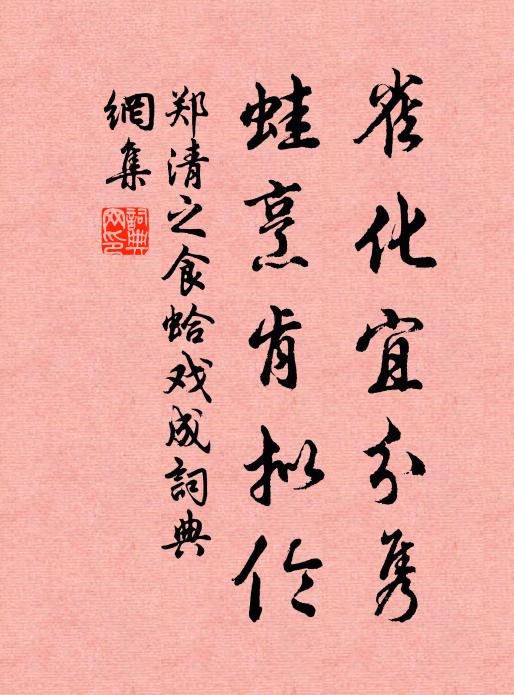 雀化宜分隽
蛙烹肯拟伦
郑清之食蛤戏成詞典
網集
詞典网印